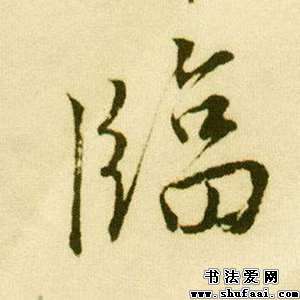 临
书法爱网
www.shufaai.com